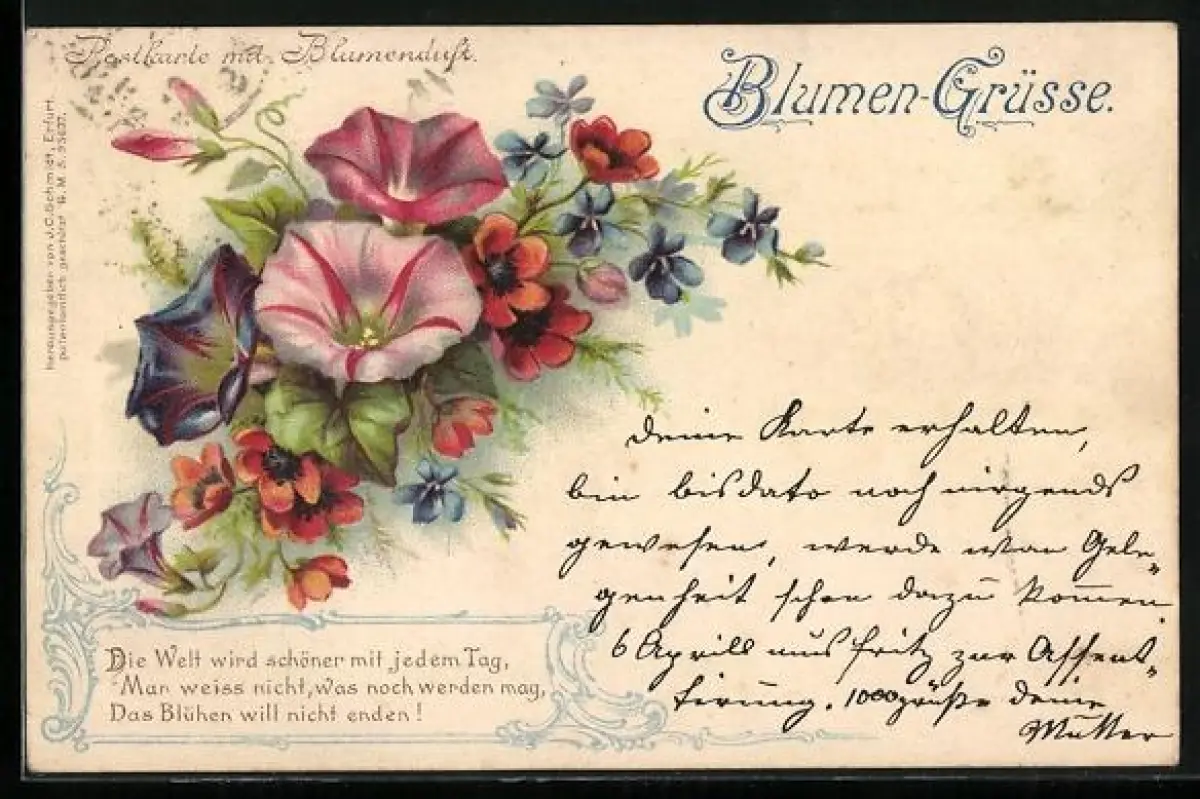 Postkarte mit Blumenduft.
Blumen-Grüsse.
herausgegeben von J.C. Schmidt, Erfurt.
patentamtlich geschützt G. M. S. 55637.
deine Karte erhalten,
bin bisdato noch nirgends
gewesen, werde wan Gele„
genheit schon dazu kom̄en
6 Aprill mus Fritz zur Assent„
tirung. 1000 grüße deine
Mutter
Die Welt wird schöner mit jedem Tag,
Man weiss nicht, was noch werden mag,
Das Blühen will nicht enden!